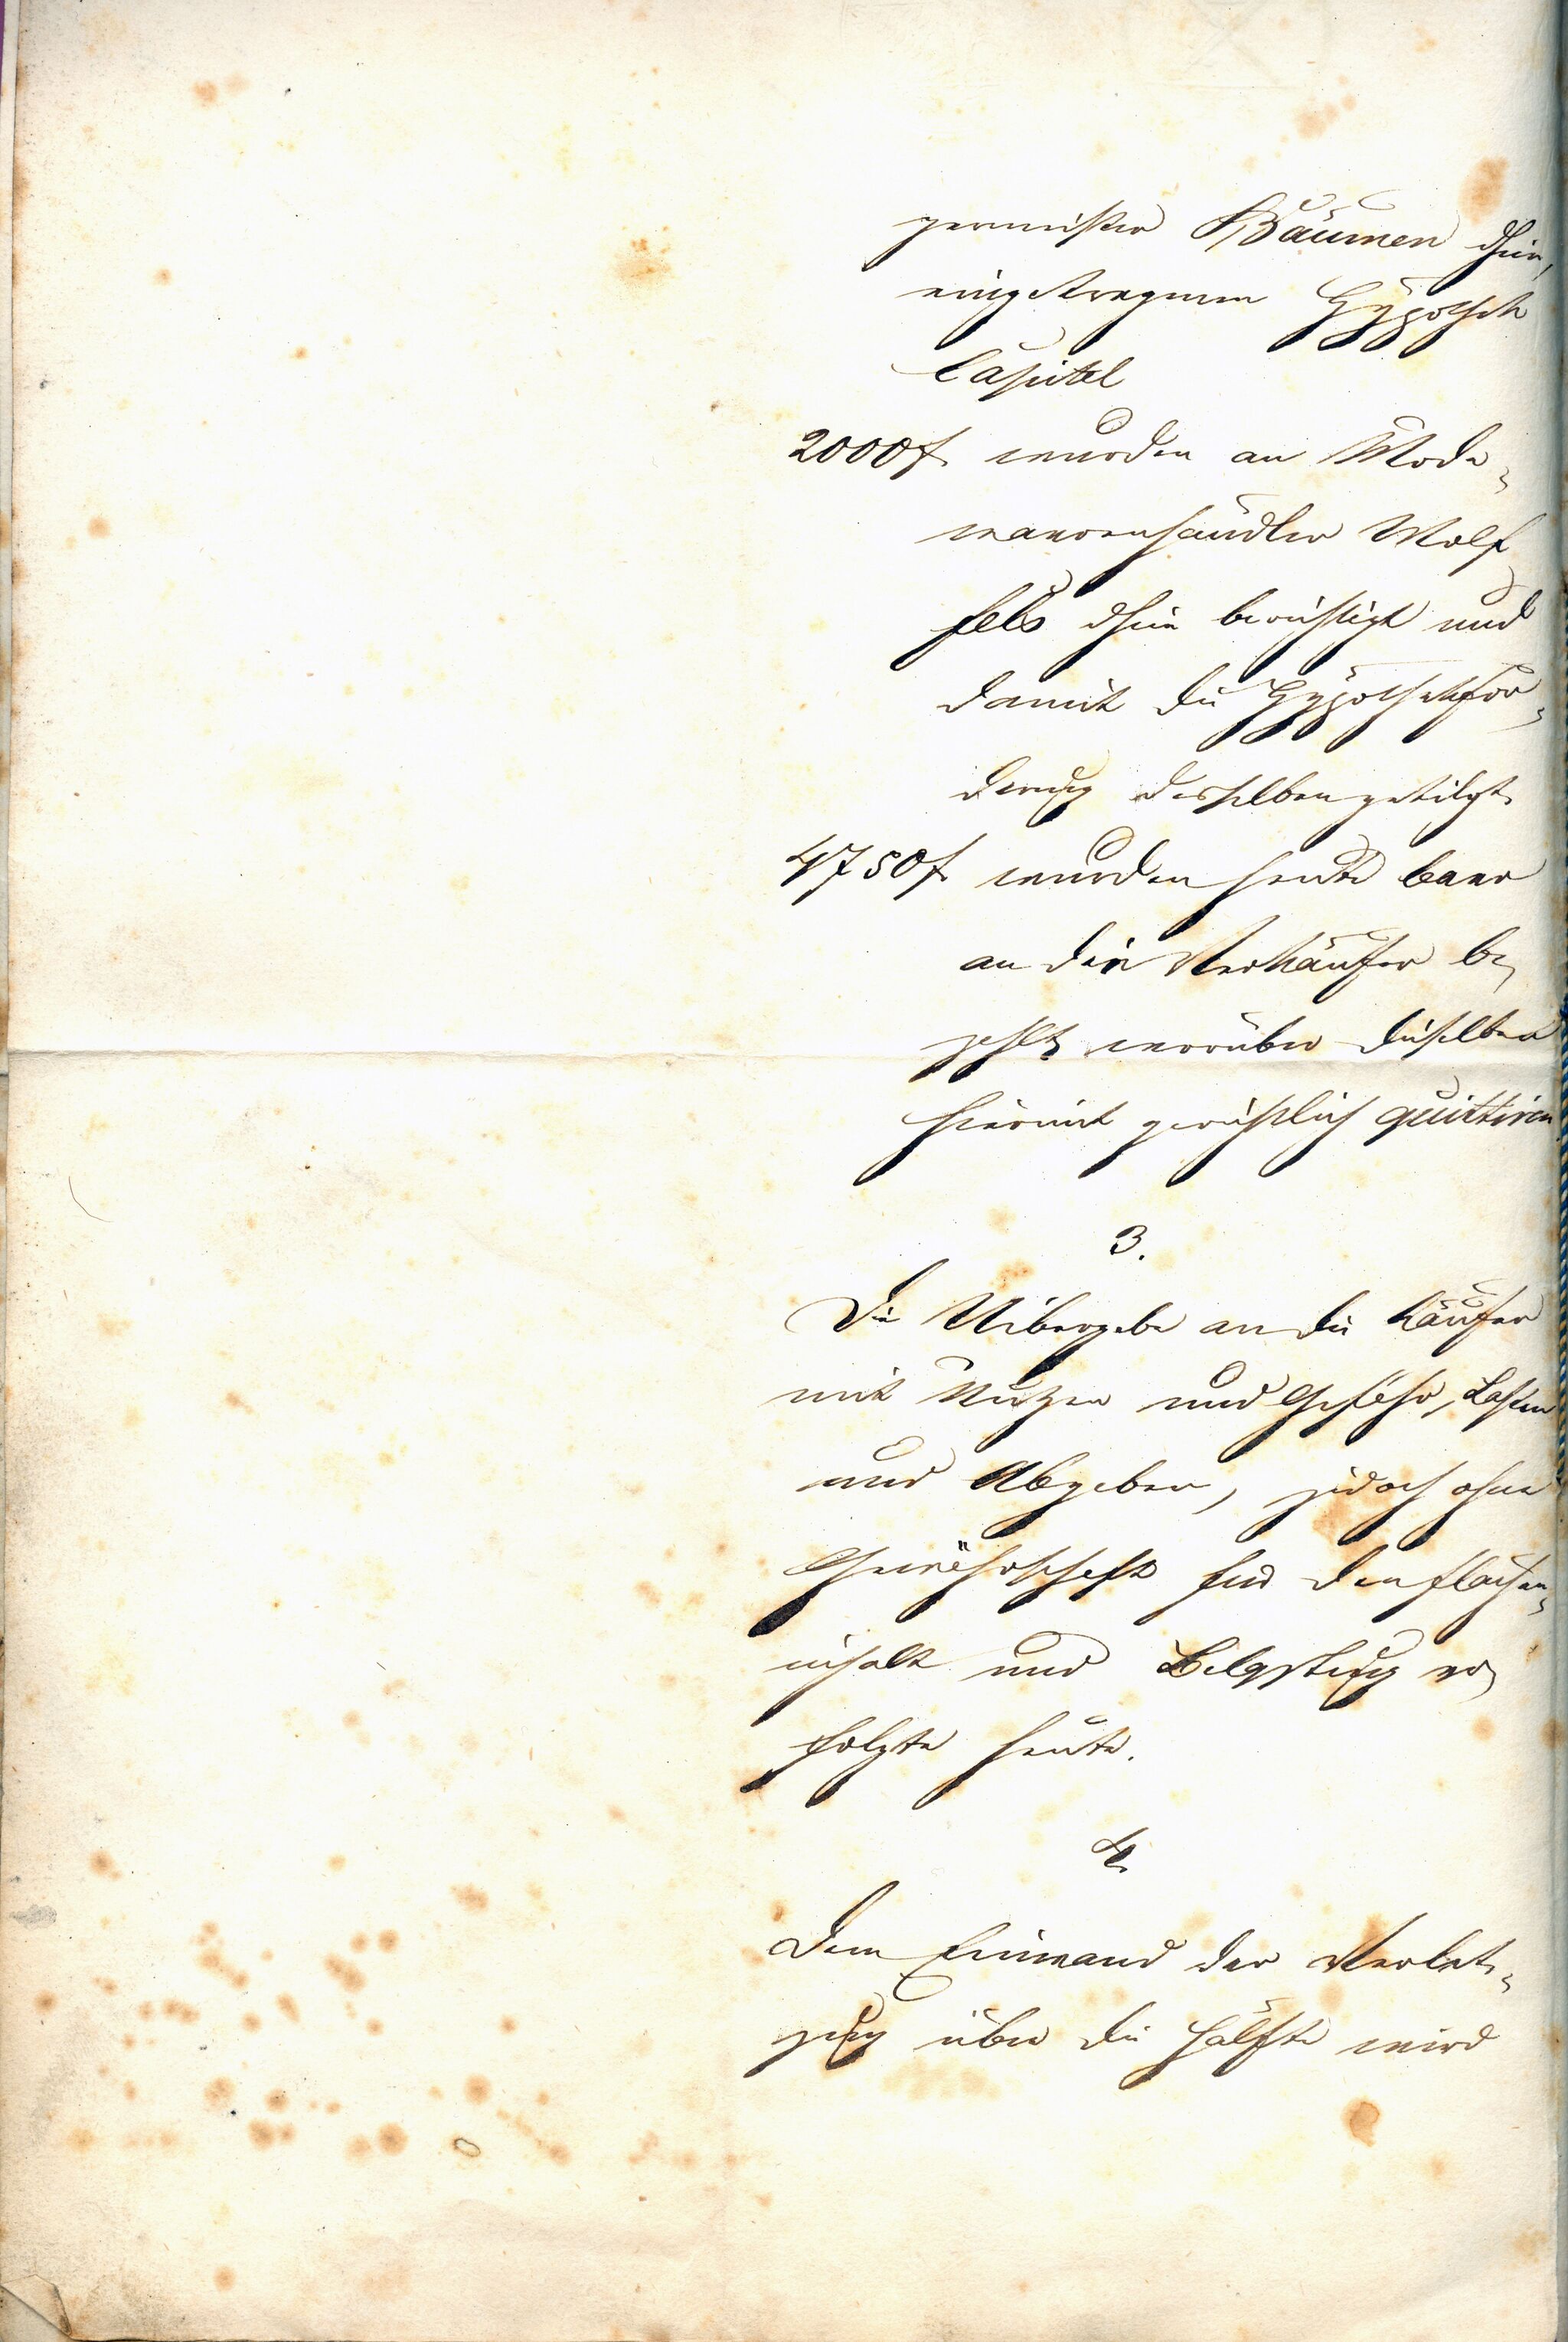 germeister Bäumen dhier,
eingetragenen Hypothek
Capitel
2000 f wurden an Mode-
waarenhändler Wolf
fels dhier berichtigt und
damit die Hypothekfor-
derung desselben getilgt
4750 f wurden heute baar
an die Verkäufer be-
zahlt worüber dieselben
hiermit gerichtlich quittiren
3.
Die Uibergabe an die Käufer
mit Nutzen und Gefahr, Lasten
und Abgaben, jedoch ohne
Gewährschaft für den Flächen-
inhalt und Belastung er-
folgte heute.
4.
Dem Einwand der Verlet-
zung über die Hälfte wird